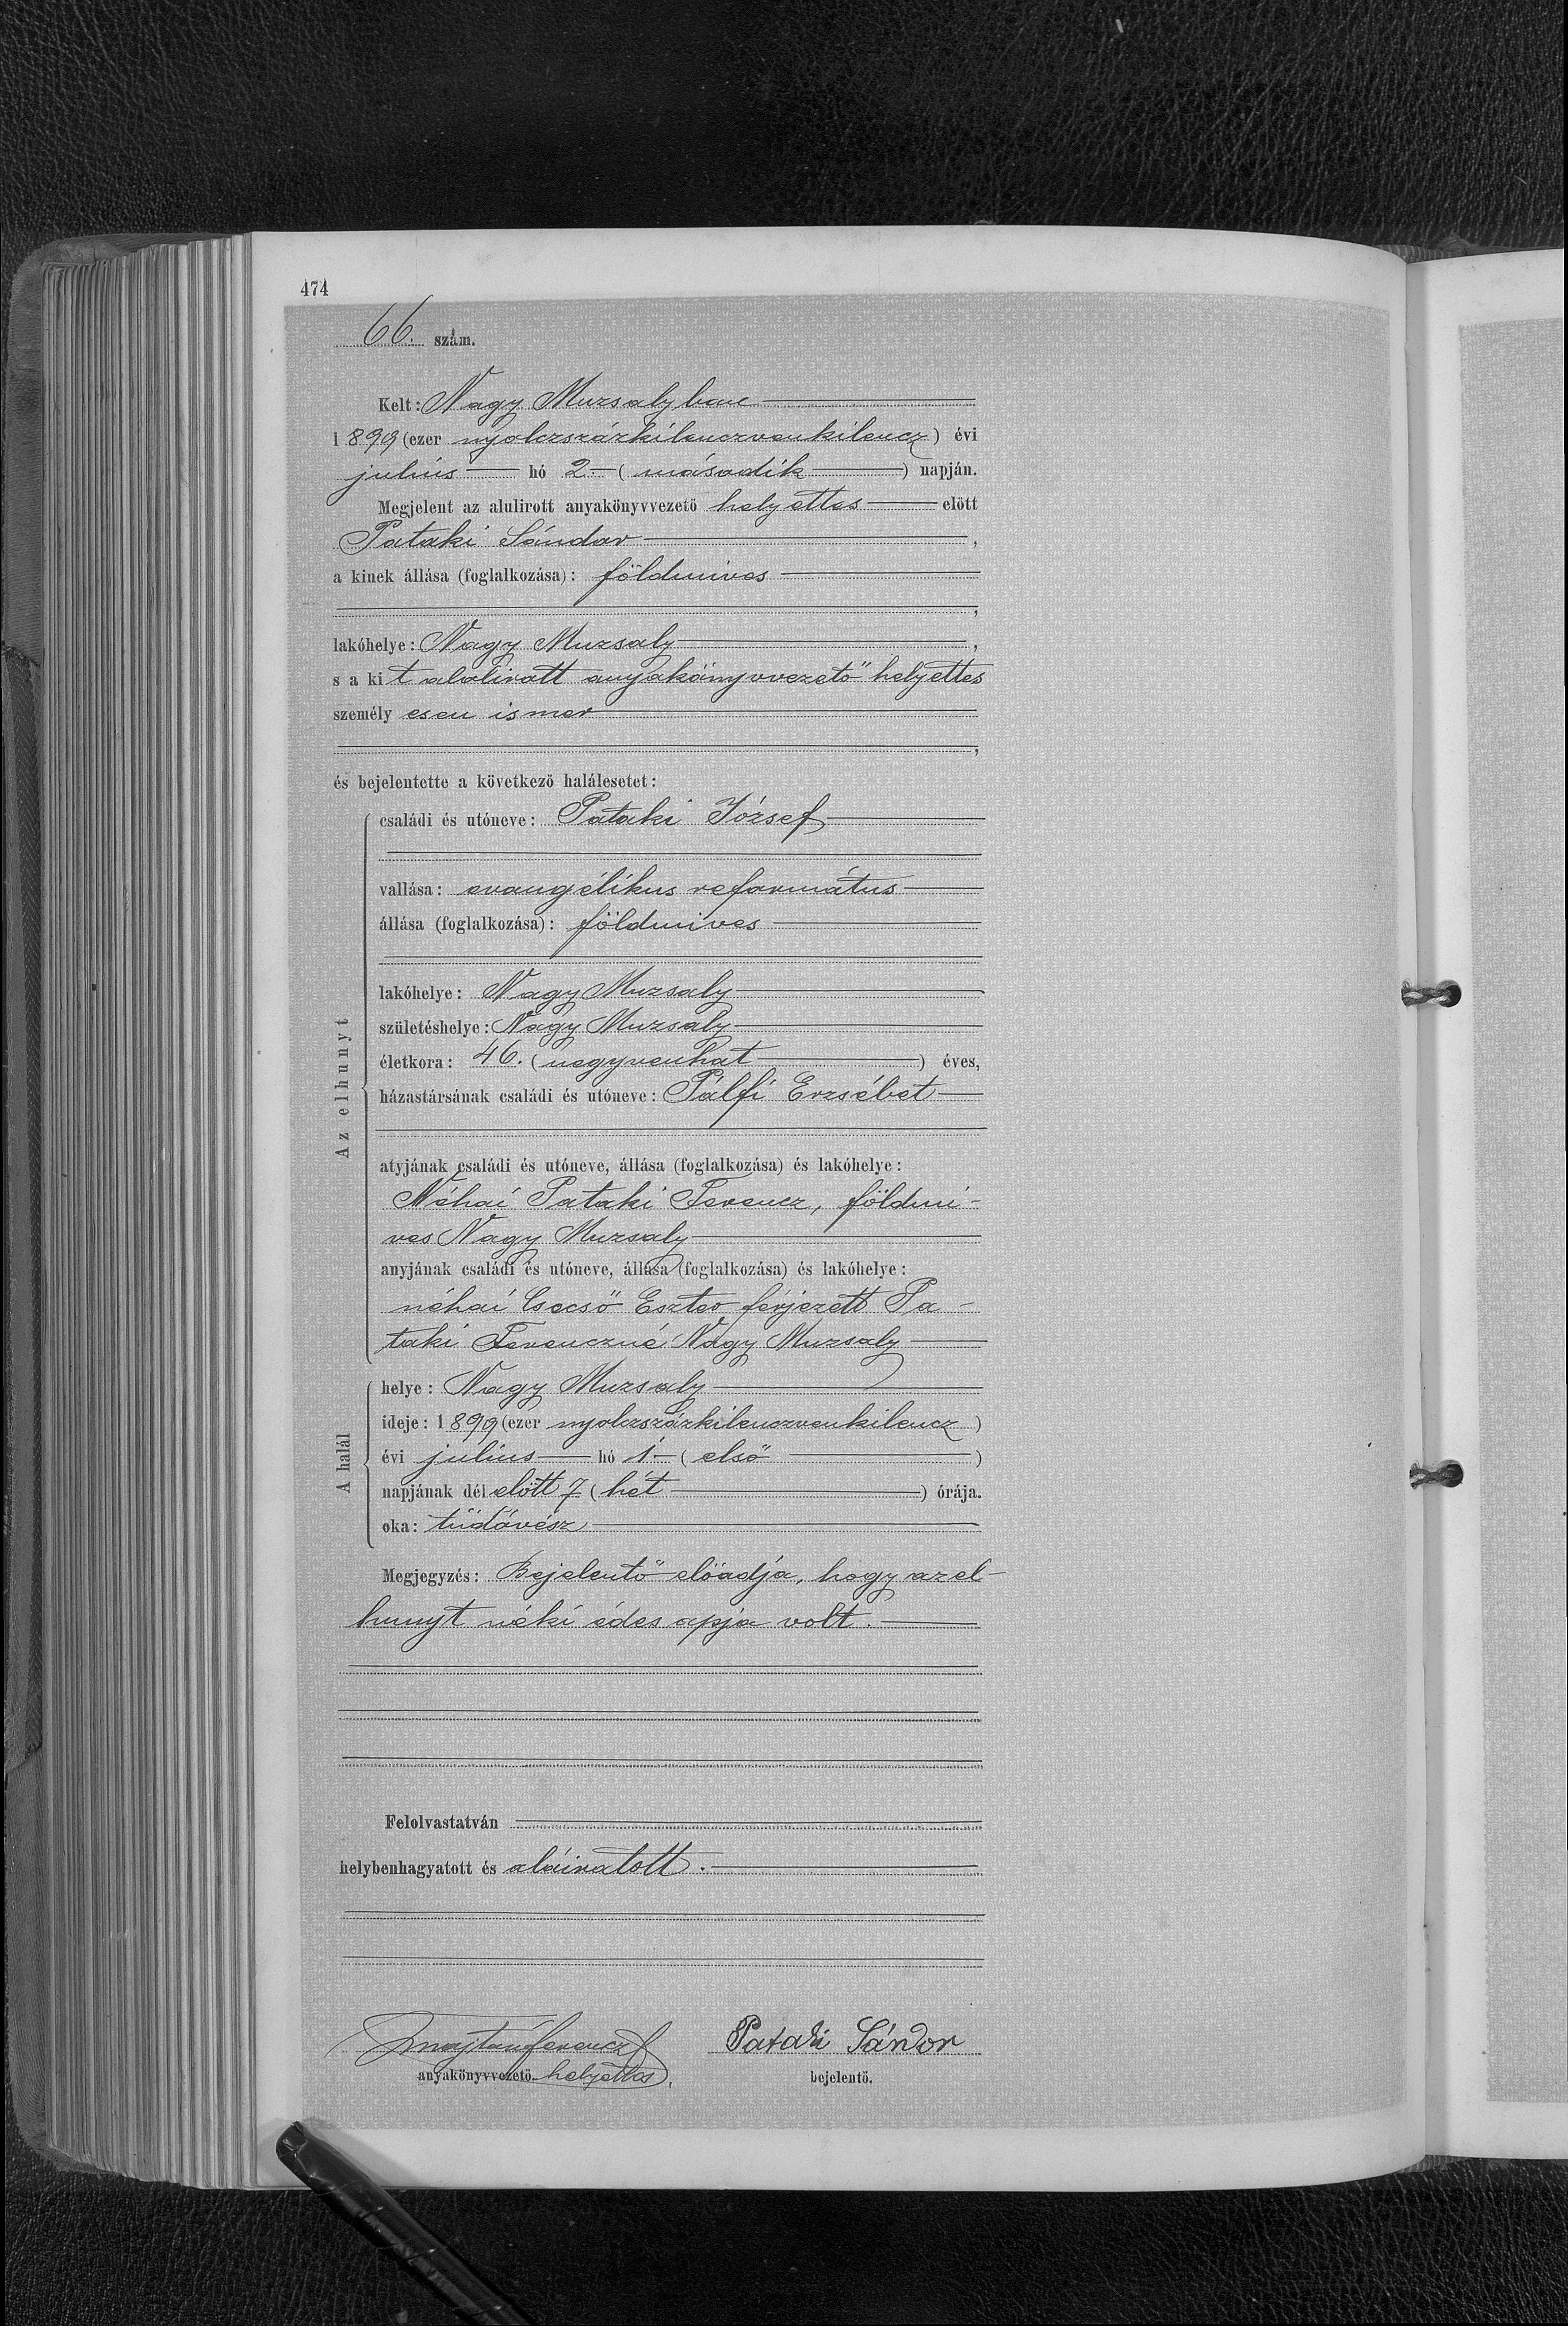 474
66. szám.
Kelt: Nagy Muzsalyban
1899 (ezer nyolczszázkilenczvenkilencz) évi
julius hó 2 (második) napján.
Megjelent az alulirott anyakönyvvezető helyettes előtt
Pataki Sándor,
a kinek állása (foglalkozása): földmives
,
lakóhelye: Nagy Muzsaly,
s a kit alolirott anyakönyvvezető helyettes
személyesen ismer
,
és bejelentette a következő halálesetet:
Az elhunyt
családi és utóneve: Pataki József
vallása: evangélikus református
állása (foglalkozása): földmives
lakóhelye: Nagy Muzsaly
születéshelye: Nagy Muzsaly
életkora: 46. (negyvenhat) éves,
házastársának családi és utóneve: Pálfi Erzsébet
atyjának családi és utóneve, állása (foglalkozása) és lakóhelye:
Néhai Pataki Ferencz, földmi-
ves Nagy Muzsaly
anyjának családi és utóneve, állása (foglalkozása) és lakóhelye:
néhai Csecső Eszter férjezett Pa-
taki Ferenczné Nagy Muzsaly
A halál
helye: Nagy Muzsaly
ideje: 1899 (ezer nyolczszázkilenczvenkilencz)
évi julius hó 1 (első)
napjának dél előtt 7 (hét) órája.
oka: tüdővész
Megjegyzés: Bejelentő előadja, hogy az el-
hunyt néki édes apja volt.
Felolvastatván
helybenhagyatott és aláiratott.
Majtán Ferencz Pataki Sándor
anyakönyvvezető helyettes, bejelentő.